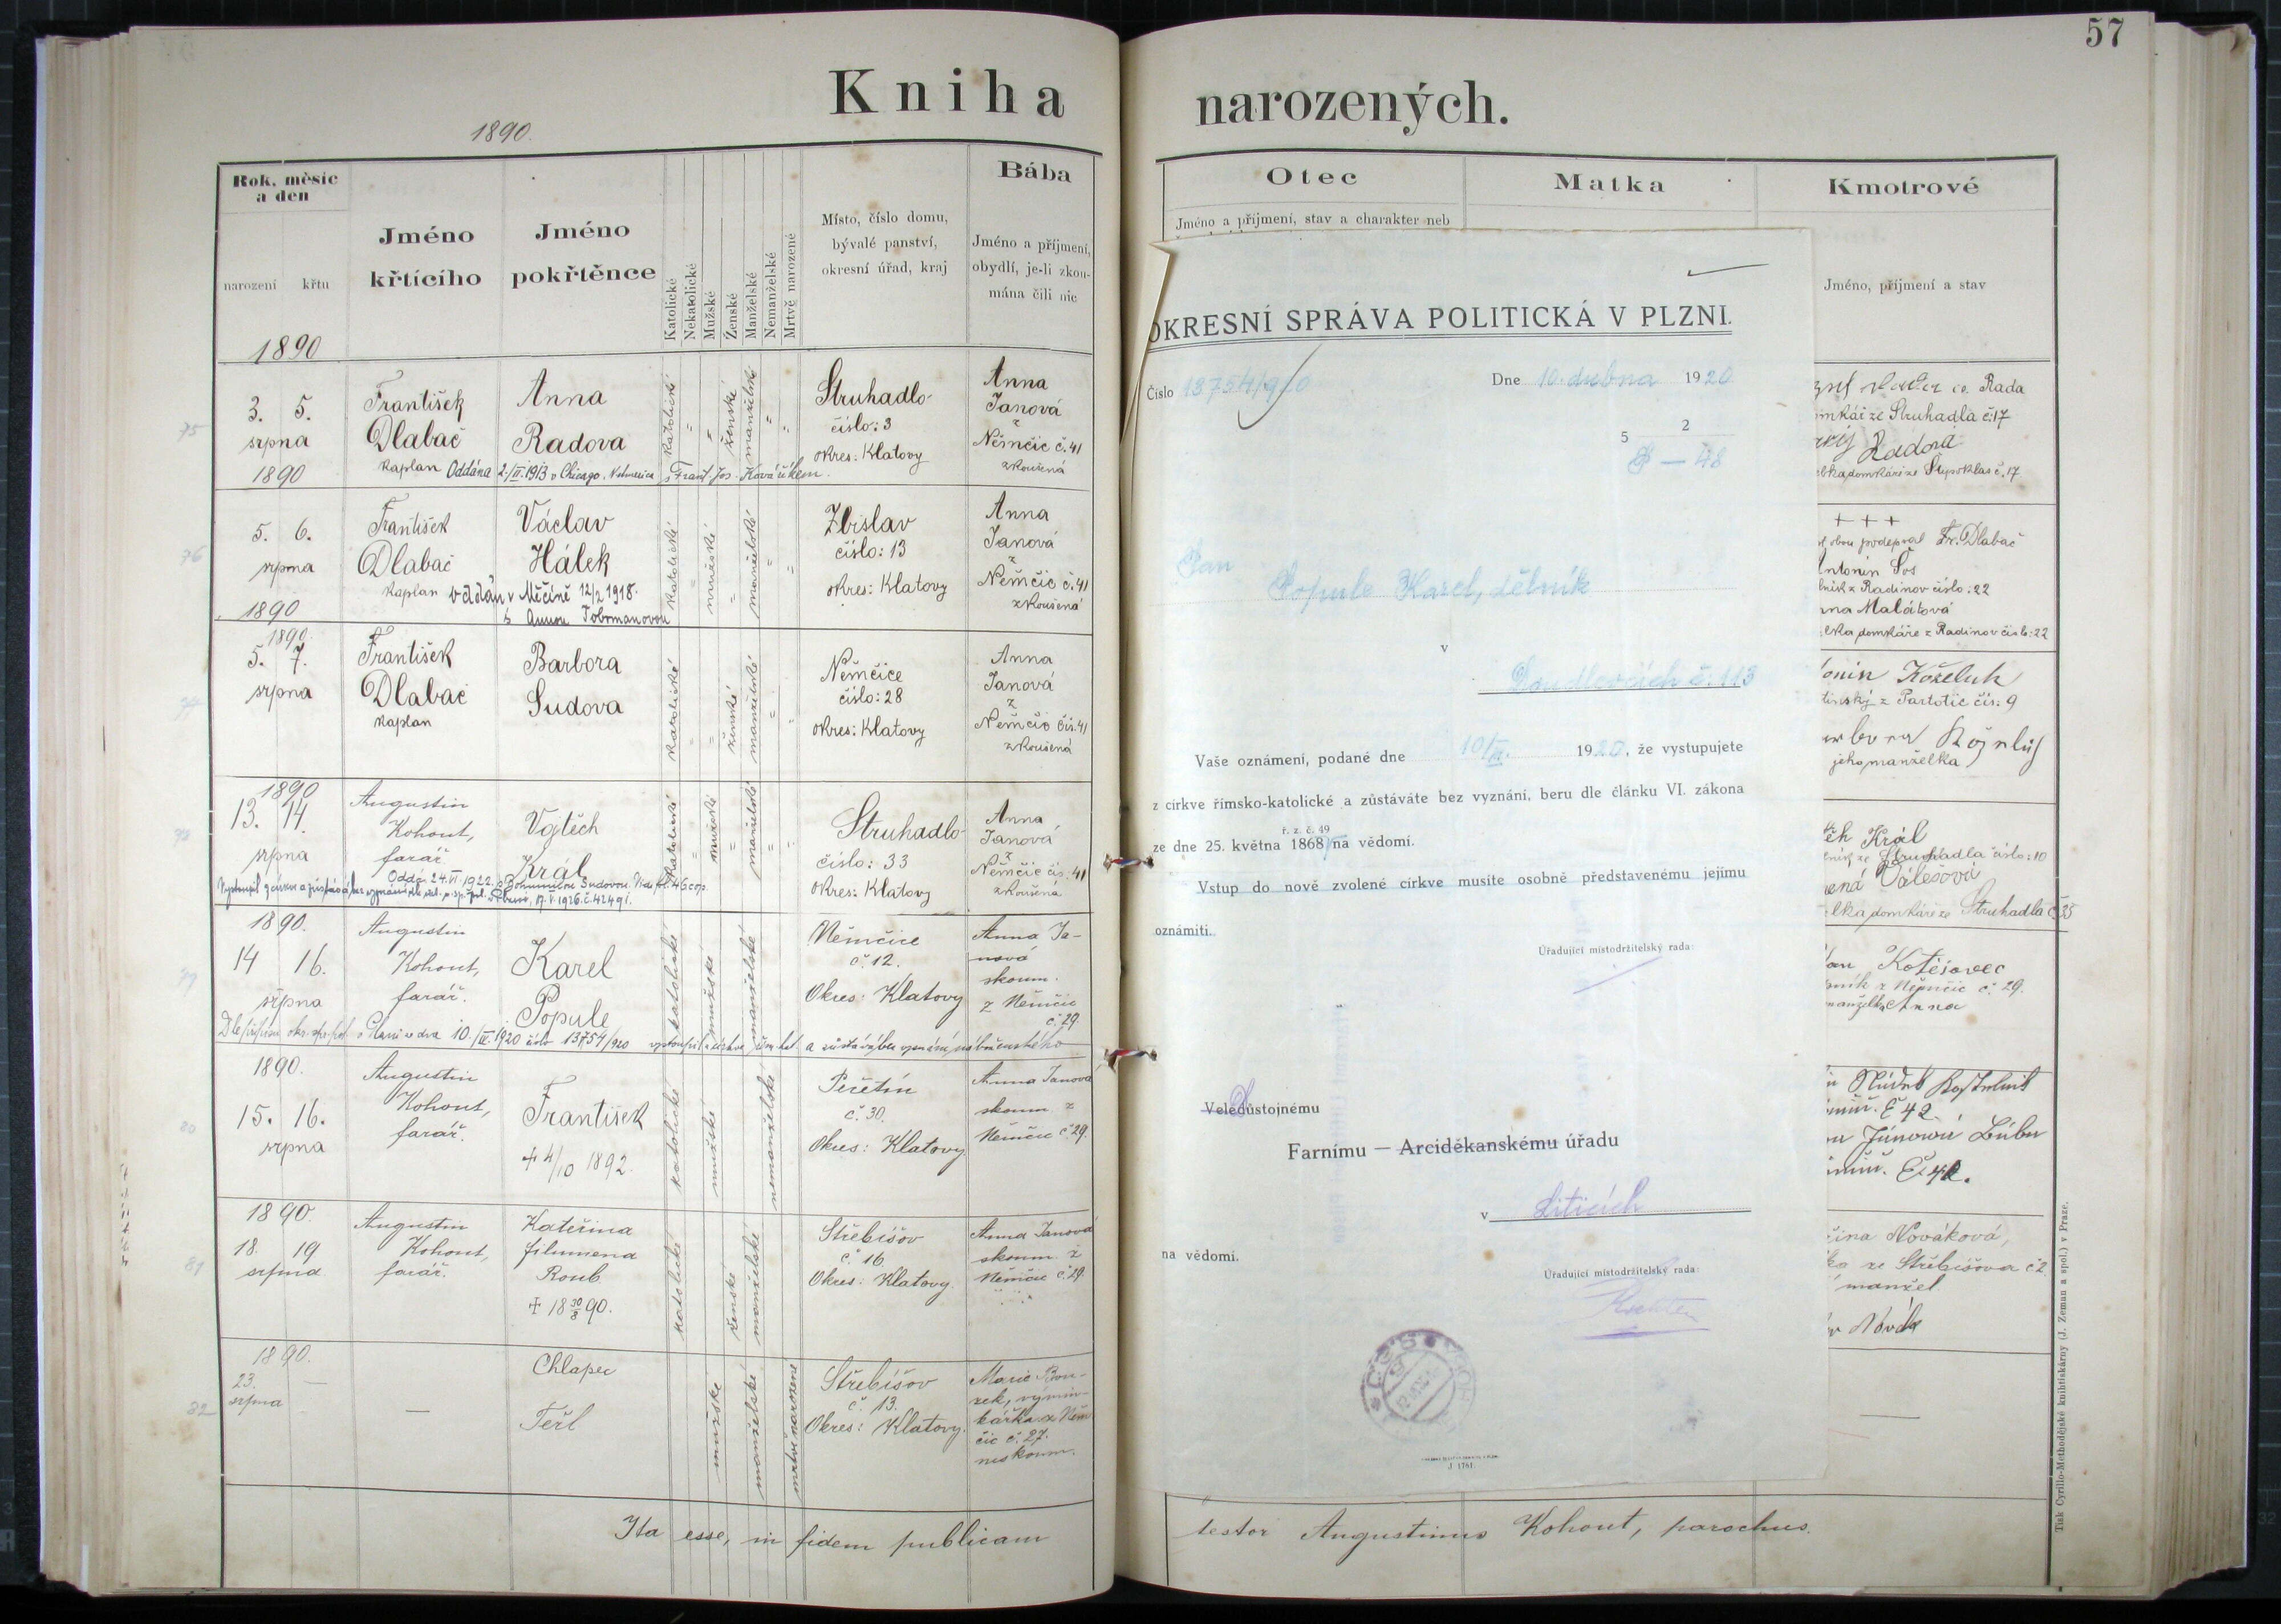 57
Kniha narozených.
1890.
Rok, měsíc
a den
narození křtu
Jméno
křtícího
Jméno
pokřtěnce
Katolické
Nekatolické
Mužské
Ženské
Manželské
Nemanželské
Mrtvě narozené
Místo, číslo domu,
bývalé panství,
okresní úřad, kraj
Bába
Jméno a příjmení,
obydlí, je-li zkou-
mána čili nic
1890
75
3. 5.
srpna
1890
František
Dlabač
kaplan
Anna
Radova
katolické
ženské
manželské
Struhadlo
číslo: 3
okres: Klatovy
Anna
Janová
z
Němčic č. 41
zkoušená
Oddána 2./II. 1913 v Chicago, s Frant. Jos. Kovaříkem.
76
5. 6.
srpna
1890
František
Dlabač
kaplan
Václav
Hálek
oddán v Měčíně 12/2 1918.
s Annou Tobrmanovou
katolické
mužské
manželské
Zbislav
číslo: 13
okres: Klatovy
Anna
Janová
z
Němčic č. 41
zkoušená
77
1890.
5. 7.
srpna
František
Dlabač
kaplan
Barbora
Sudova
katolické
ženské
manželské
Němčice
číslo: 28
okres: Klatovy
Anna
Janová
z
Němčic čís. 41
zkoušená
78
1890
13. 14.
srpna
Augustin
Kohout,
farář
Vojtěch
Král
katolické
mužské
manželské
Struhadlo
číslo: 33
okres: Klatovy
Anna
Janová
z
Němčic čís. 41
zkoušená
Odd. 24. VI. 1922. s Bohumilou Sudovou.
17. V. 1926. č. 42491.
79
1890.
14 16.
srpna
Augustin
Kohout,
farář.
Karel
Popule
katolické
mužské
manželské
Němčice
č. 12.
Okres: Klatovy
Anna Ja-
nová
skoum.
z Němčic
č. 29
10./IV. 1920 číslo 13754/920 a zůstává bez vyznání náboženského
80
1890.
15. 16.
srpna
Augustin
Kohout,
farář.
František
+ 4/10 1892.
katolické
mužské
nemanželské
Petrčtín
č. 30.
Okres: Klatovy
Anna Janova
skoum. z
Němčic č. 29.
81
1890.
18. 19
srpna
Augustin
Kohout,
farář.
Kateřina
filumena
Roub
+ 18 30/8 90.
katolické
ženské
manželské
Střebišov
č. 16
Okres: Klatovy.
Anna Janová
skoum. z
Němčic č. 29.
82
1890.
23.
srpna
Chlapec
Teřl
mužské
manželské
mrtvě narozené
Střebišov
č. 13.
Okres: Klatovy.
Marie Bou-
zek, výmin-
kářka z Něm
čic č. 27.
neskoum.
Ita esse, in fidem publicam testor Augustinus Kohout, parochus.
Otec
Jméno a příjmení, stav a charakter neb
Matka
Kmotrové
Jméno, příjmení a stav
OKRESNÍ SPRÁVA POLITICKÁ V PLZNI.
Číslo 13754/910
Dne 10. dubna 1920
5 2
8 — 48
Pan
Popule Karel, dělník
v
Doudlevcích č. 113
Vaše oznámení, podané dne 10/IV. 1920, že vystupujete
z církve římsko-katolické a zůstáváte bez vyznání, beru dle článku VI. zákona
ř. z. č. 49
ze dne 25. května 1868 na vědomí.
Vstup do nově zvolené církve musíte osobně představenému jejímu
oznámiti.
Úřadující místodržitelský rada:
Veledůstojnému
Farnímu — Arciděkanskému úřadu
v Liticích
na vědomí.
Úřadující místodržitelský rada:
J. 1761.
Rada
ze Struhadla č: 17
Radová
č. 17
+ + +
podepsal Fr. Dlabač
Antonín Šos
z Radinov číslo: 22
Malátová
domkáře z Radinov číslo: 22
Koželuh
čís: 9
jeho manželka
Král
ze Struhadla číslo: 10
Válešová
domkáře ze Struhadla č 35
Jan Kotěšovec
z Němčic č. 29.
manželka Anna
č 42
č. 42.
Nováková,
ze Střebišova č 2.
manžel
Novák
Tisk Cyrillo-Methodějské knihtiskárny (J. Zeman a spol.) v Praze.